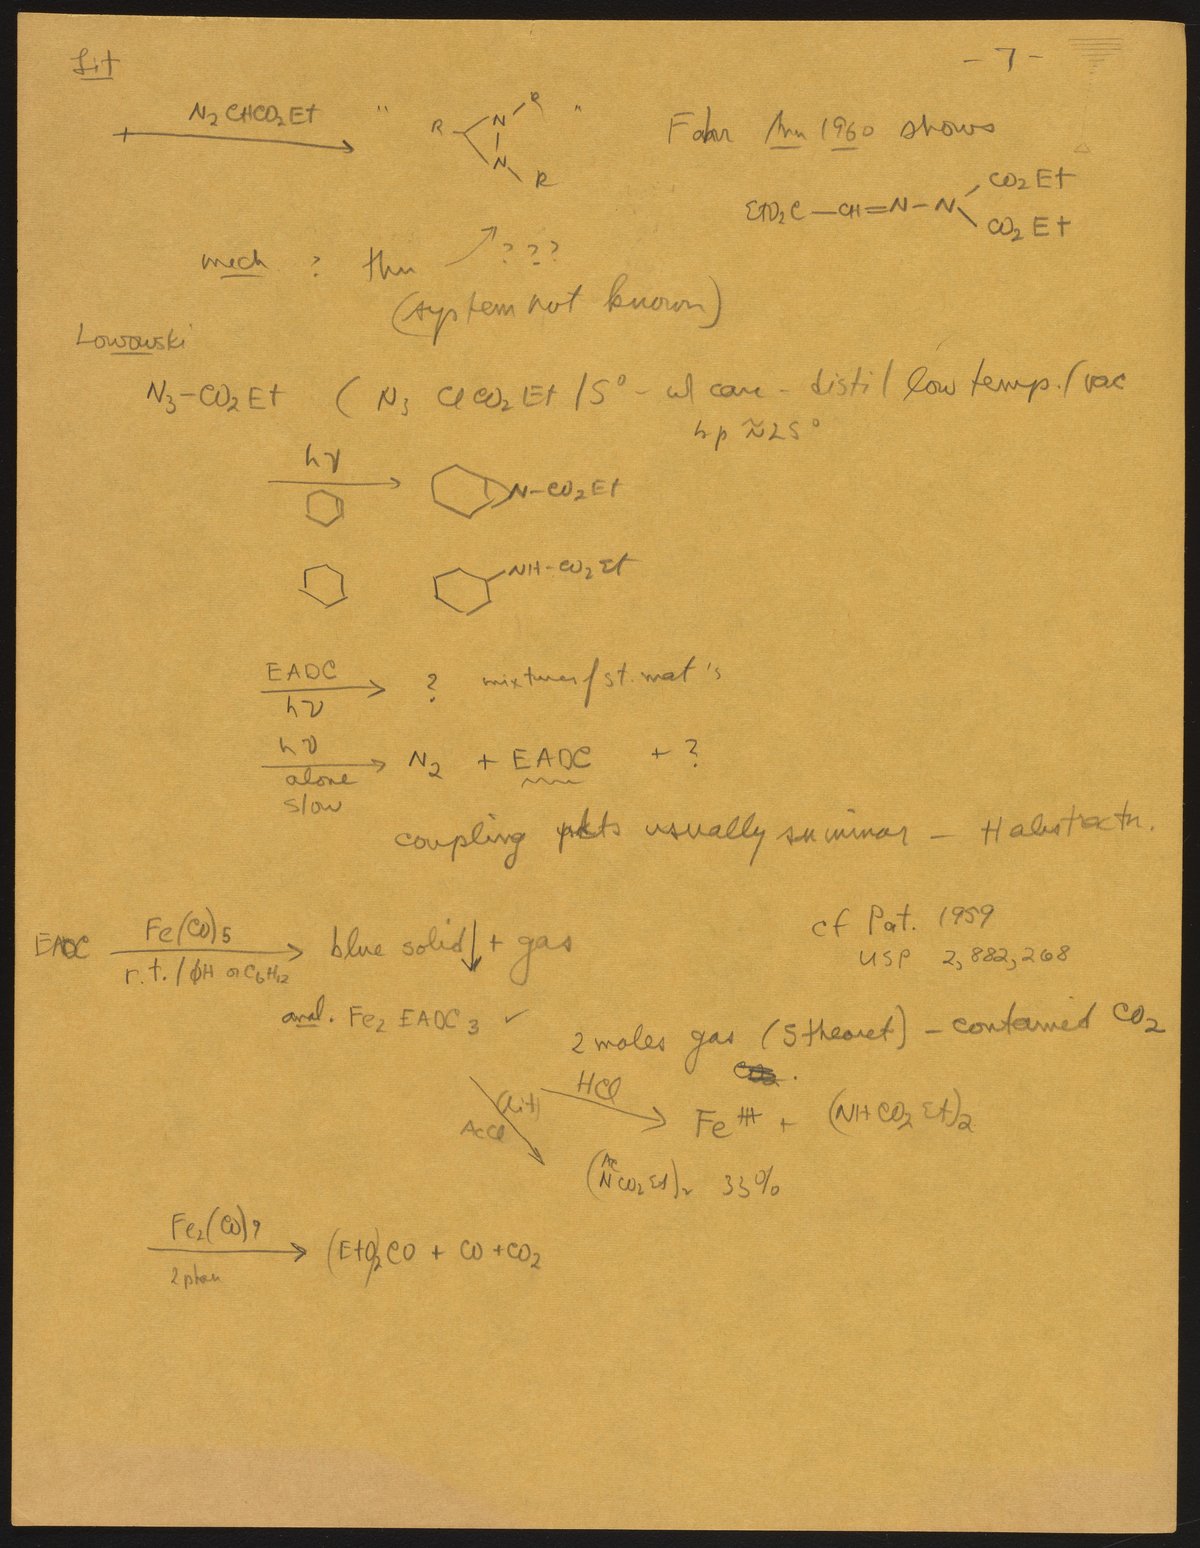 Lit
- 7 -
N2CHCO2Et " R N R N R " Fahr Ann 1960 shows
EtO2C—CH=N—N CO2Et CO2Et
mech ? thru ???
(system not known)
Lowowski
N3-CO2Et ( N3 ClCO2Et / 5° - w/ care - distil low temp. / vac
bp ≈25°
hν N-CO2Et
NH-CO2Et
EADC hν ? mixtures / st. mat's
hν alone slow N2 + EADC + ?
coupling pdts usually in minor — H abstractn.
EADC Fe(CO)5 r.t. / φH or C6H12 blue solid↓ + gas
cf Pat. 1959
USP 2,882,268
anal. Fe2 EADC3 ✓
2 moles gas (5 theoret) - contained CO2
HCl Fe+++ + (NHCO2Et)2
AcCl (Ac NCO2Et)2 33%
Fe2(CO)9 (EtO)2CO + CO + CO2